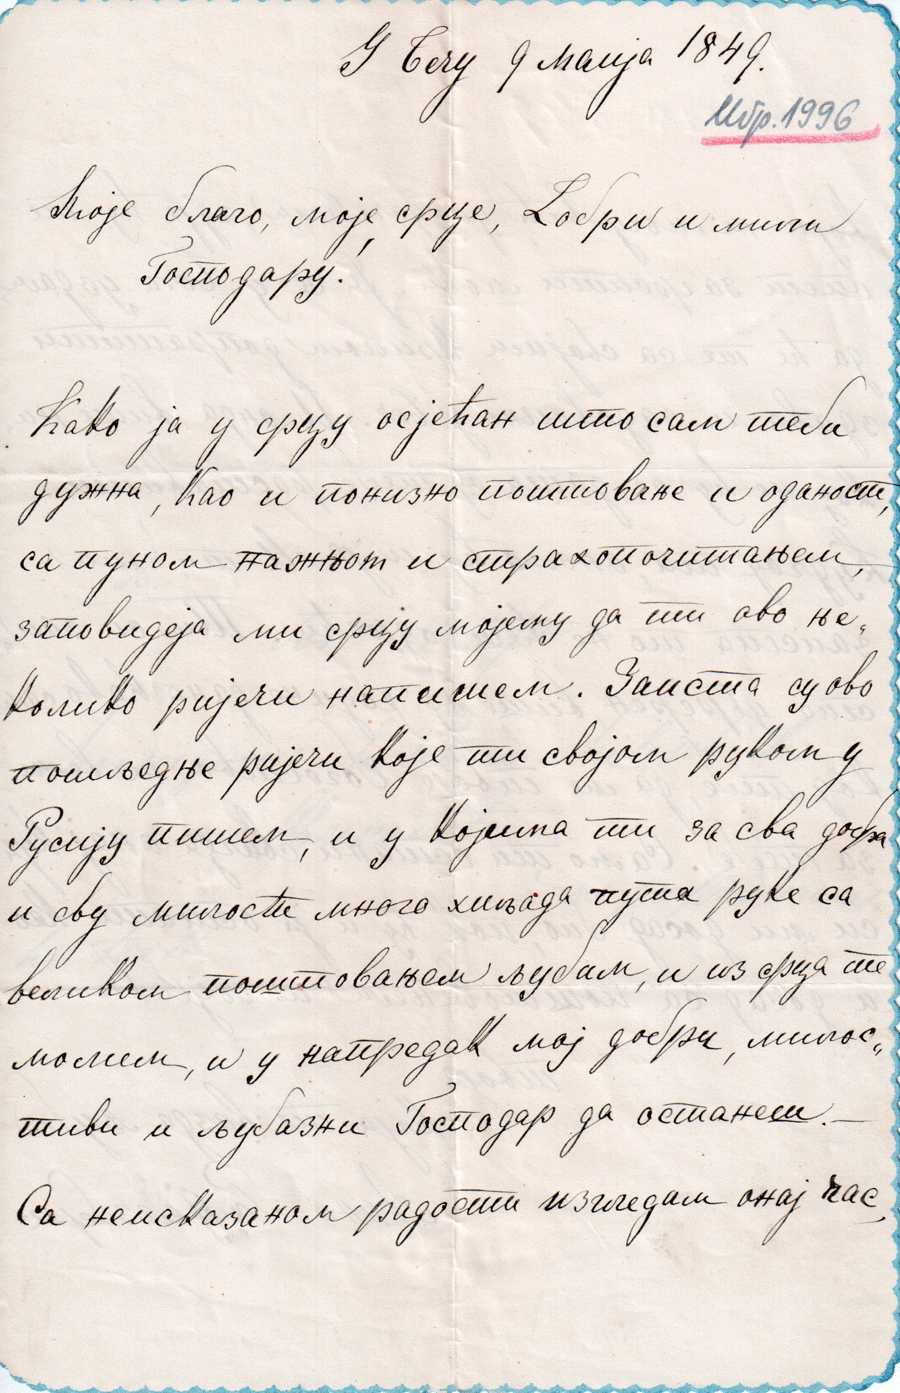 У Бечу 9 маија 1849.
Инбр. 1996
Моје благо, моје срце, Добри и мили
Господару!
Како ја у срцу осјећан што сам теби
дужна, Као и понизно поштовање и оданост,
са пуном пажњом и страхопочитањем,
заповидеја ми срцу мојему да ти ово ње„
колико ријечи напишем. Заиста су ово
пошљедње ријечи које ти својом руком у
Русију пишем, и у којима ти за сва добра
и сву милости много хиљада пута руке са
великом поштовањем љубим, и из срца те
молим, и у напредак мој добри, милос„
тиви и љубазни Господар да останеш.—
Са неисказаном радости изгледам онај час,